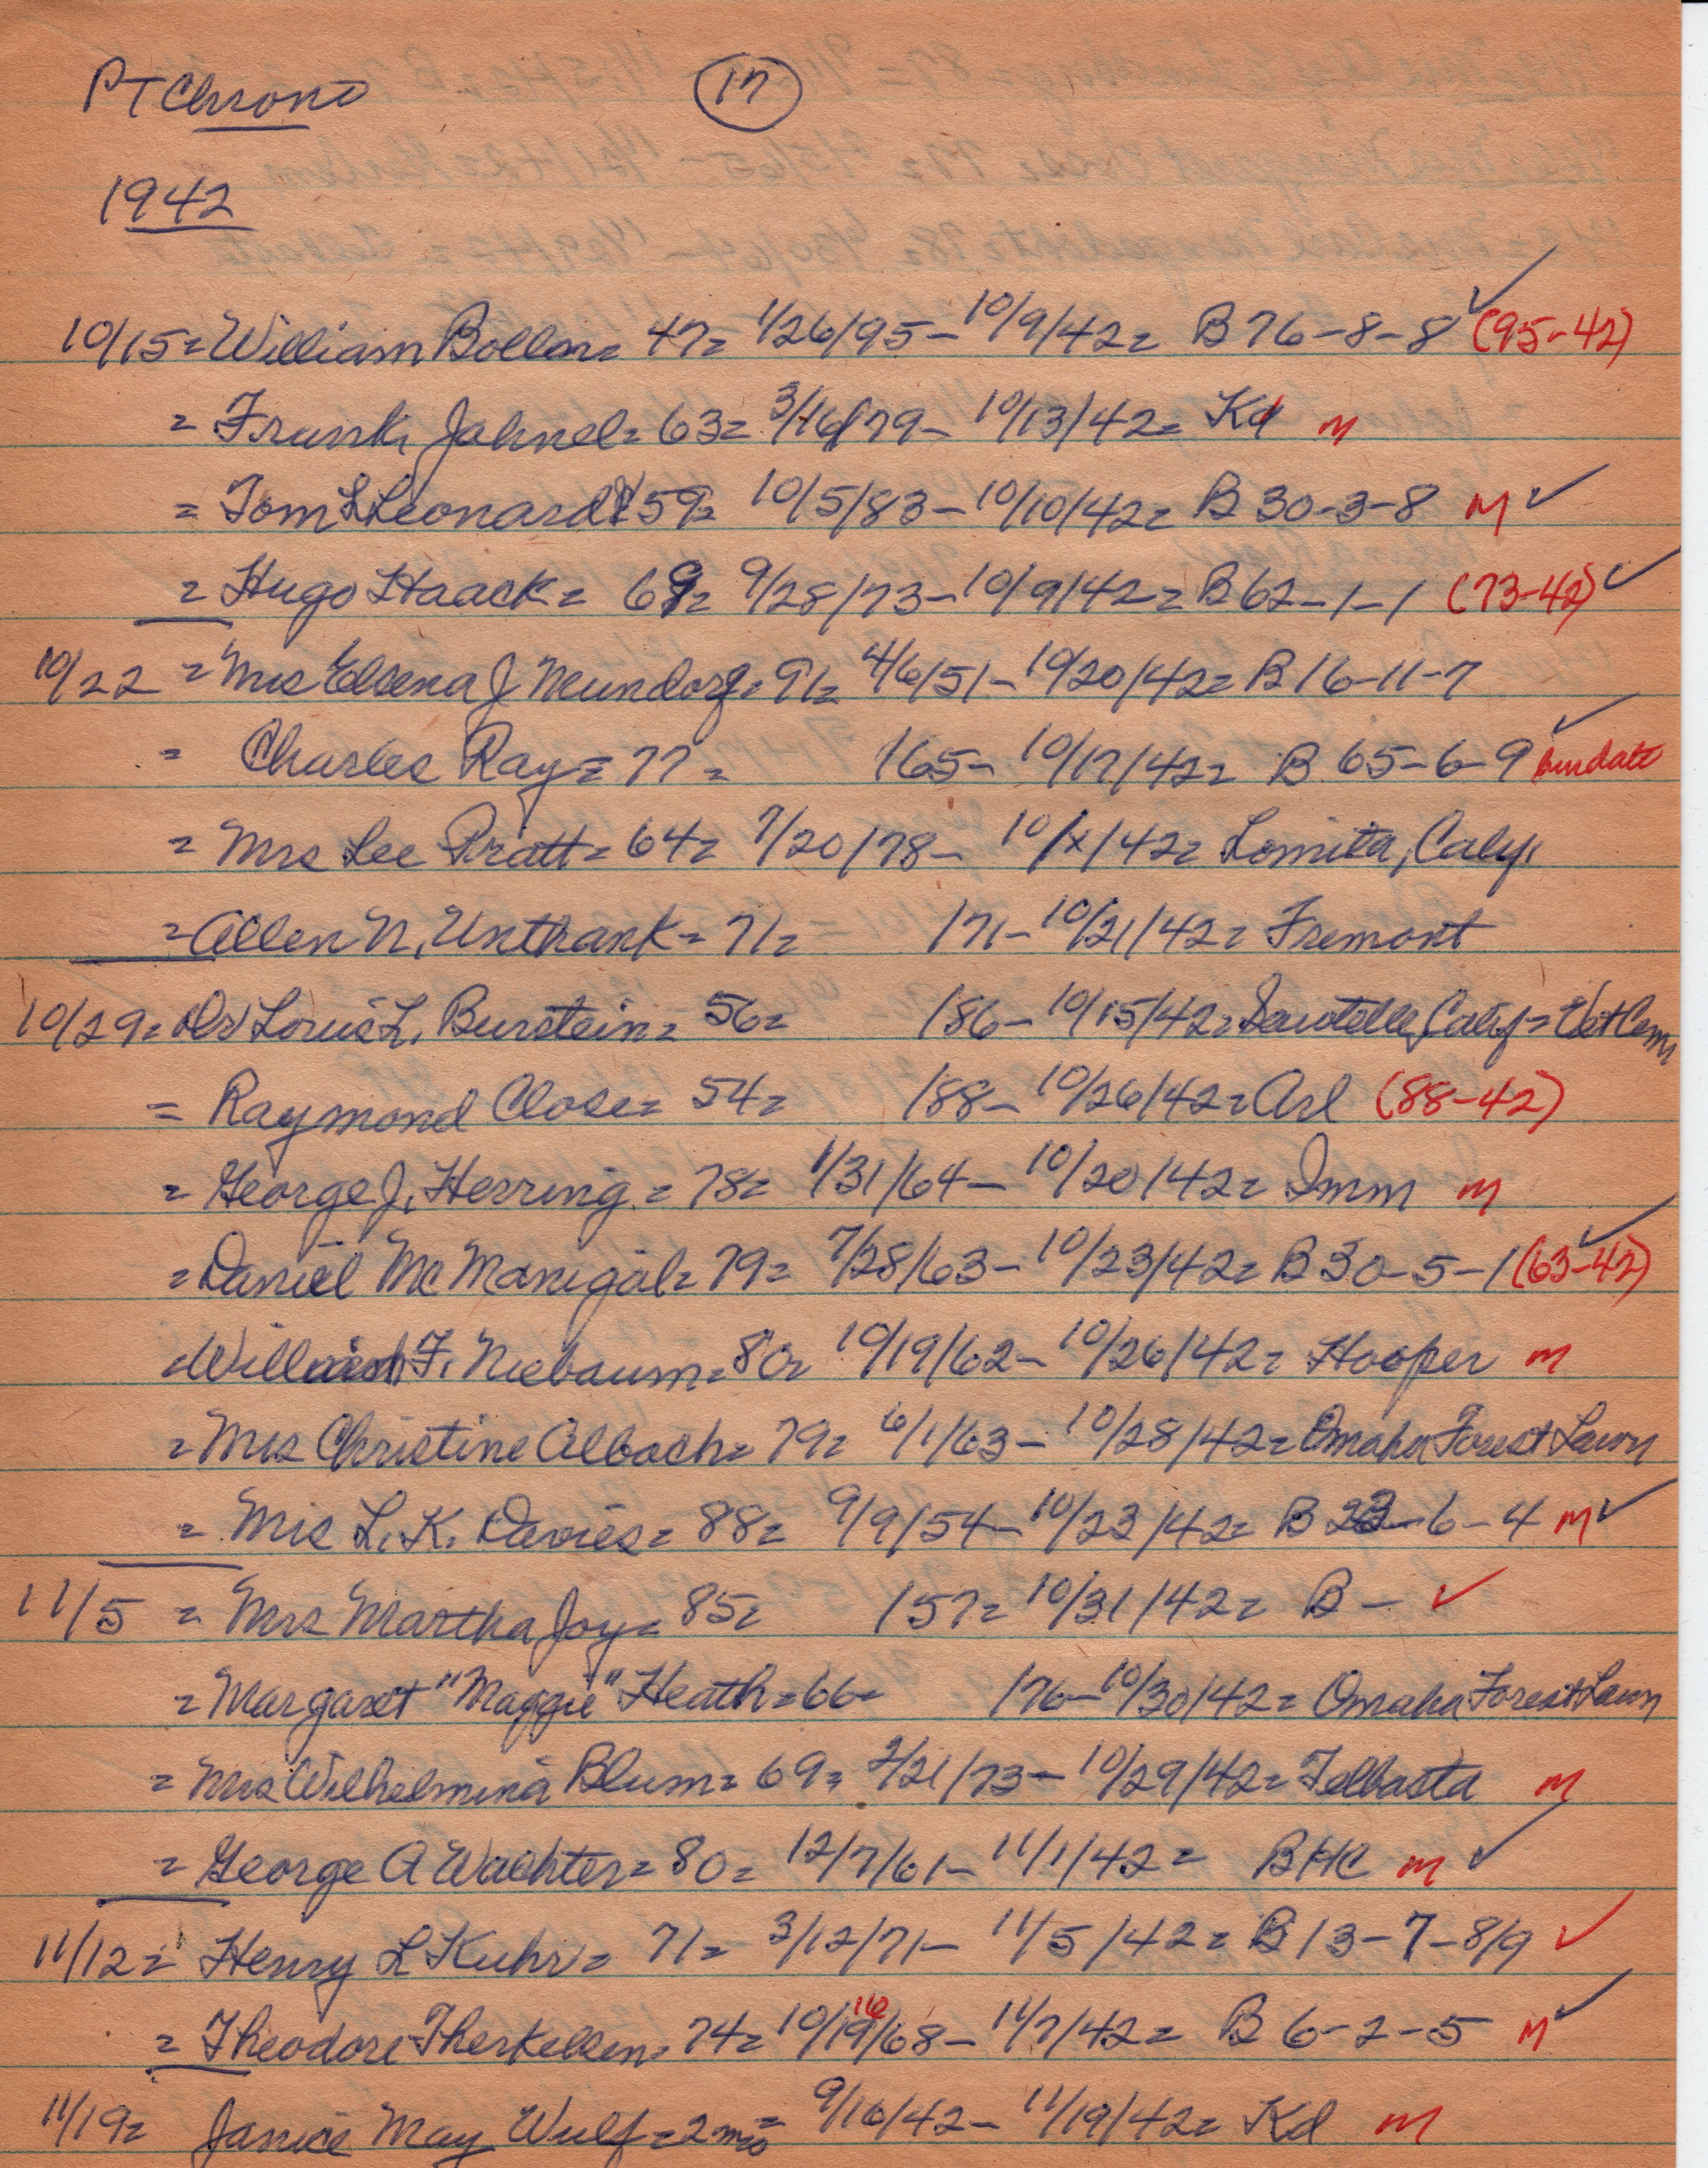 PT Chrono (17)
1942
10/15 = William Bollen = 47 = 1/26/95 - 10/9/42 = B 76-8-8 ✓ (95-42)
= Frank Jahnel = 63 = 3/16/79 - 10/13/42 = Kd M
= Tom L Leonard 59 = 10/5/83 - 10/10/42 = B 30-3-8 M ✓
= Hugo Haack = 69 = 9/28/73 - 10/9/42 = B 62-1-1 (73-42) ✓
10/22 = Mrs J Mundorf = 91 = 4/6/51 - 10/20/42 = B 16-11-7
= Charles Ray = 77 = /65 - 10/17/42 = B 65-6-9 ✓
= Mrs Lee Pratt = 64 = 7/20/78 - 10/x/42 = Lomita, Calif.
= Allen N. Unthank = 71 = /71 - 10/21/42 = Fremont
10/29 = Dr Louis L. Burstein = 56 = /86 - 10/15/42 = Sawtelle, Calif = Vet Cem
= Raymond Close = 54 = /88 - 10/26/42 = Arl (88-42)
= George J. Herring = 78 = 1/31/64 - 10/20/42 = Imm M
= Daniel McManigal = 79 = 7/28/63 - 10/23/42 = B 30-5-1 (63-42) ✓
= F. Niebaum = 80 = 10/19/62 - 10/26/42 = Hooper M
= Mrs Christine Albach = 79 = 6/1/63 - 10/28/42 = Omaha Forest Lawn
= Mrs L. K. Davies = 88 = 9/9/54 - 10/23/42 = B 23-6-4 M ✓
11/5 = Mrs Martha Joy = 85 = /57 = 10/31/42 = B - ✓
= Margaret "Maggie" Heath = 66 = /76 - 10/30/42 = Omaha Forest Lawn
= Mrs Wilhelmina Blum = 69 = 2/21/73 - 10/29/42 = Telbasta M
= George A Wachter = 80 = 12/7/61 - 11/1/42 = BHC M ✓
11/12 = Henry L Kuhr = 71 = 3/12/71 - 11/5/42 = B 13-7-8/9 ✓
= Theodore Therkelsen = 74 = 10/19/68 - 11/7/42 = B 6-2-5 M ✓
16
11/19 = Janice May Wulf = 2 mo = 9/16/42 - 11/19/42 = Kd M